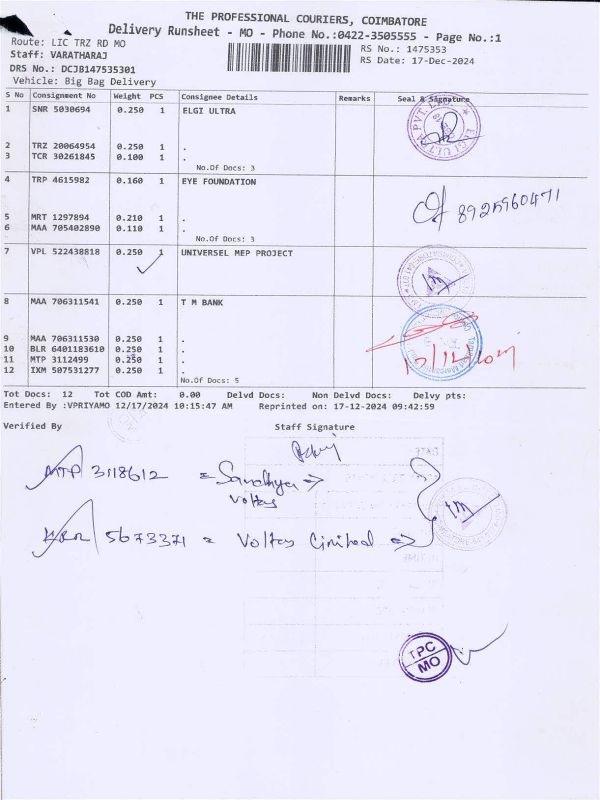 THE PROFESSIONAL COURIERS, COIMBATORE
Delivery Runsheet - MO - Phone No.:0422-3505555 - Page No.:1
Route: LIC TRZ RD MO
RS No.: 1475353
Staff: VARATHARAJ
RS Date: 17-Dec-2024
DRS No.: DCJB147535301
Vehicle: Big Bag Delivery
S No Consignment No Weight PCS Consignee Details Remarks Seal & Signature
1 SNR 5030694 0.250 1 ELGI ULTRA
2 TRZ 20064954 0.250 1 .
3 TCR 30261845 0.100 1 .
No.Of Docs: 3
4 TRP 4615982 0.160 1 EYE FOUNDATION
8925960471
5 MRT 1297894 0.210 1 .
6 MAA 705402890 0.110 1 .
No.Of Docs: 3
7 VPL 522438818 0.250 1 UNIVERSEL MEP PROJECT
8 MAA 706311541 0.250 1 T M BANK
9 MAA 706311530 0.250 1 .
10 BLR 6401183610 0.250 1 .
11 MTP 3112499 0.250 1 .
12 IXM 507531277 0.250 1 .
No.Of Docs: 5
Tot Docs: 12 Tot COD Amt: 0.00 Delvd Docs: Non Delvd Docs: Delvy pts:
Entered By :VPRIYAMO 12/17/2024 10:15:47 AM Reprinted on: 17-12-2024 09:42:59
Verified By Staff Signature
MTP 3118612 = Sandhya
Voltas
5673371 = Voltas Limited
TPC
MO